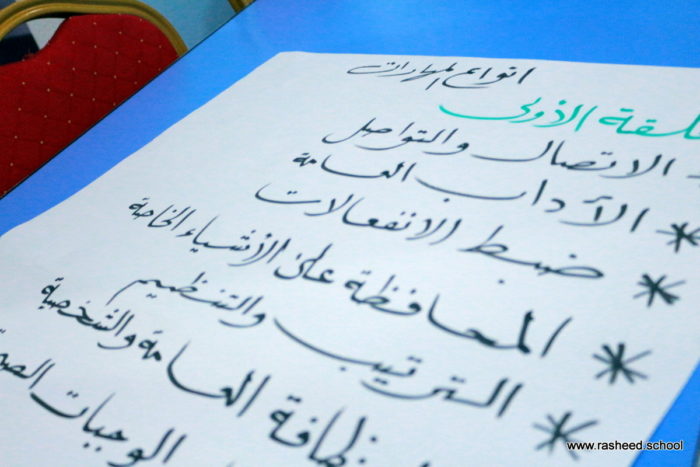 انواع المهارات
الاتصال والتواصل
* الآداب العامة
* ضبط الانفعالات
* المحافظة على الأشياء الخاصة
* الترتيب والتنظيم
العامة والشخصية
الوجبات
www.rasheed.school